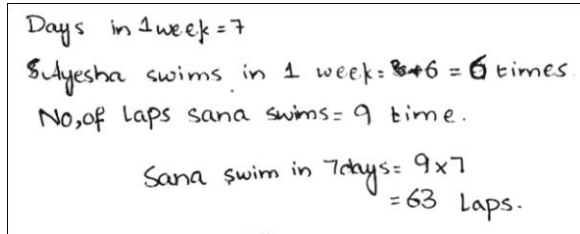 Days in 1 week = 7
Ayesha swims in 1 week = 6 = 6 times
No, of Laps sana swims = 9 time.
Sana swim in 7days = 9x7
= 63 Laps.